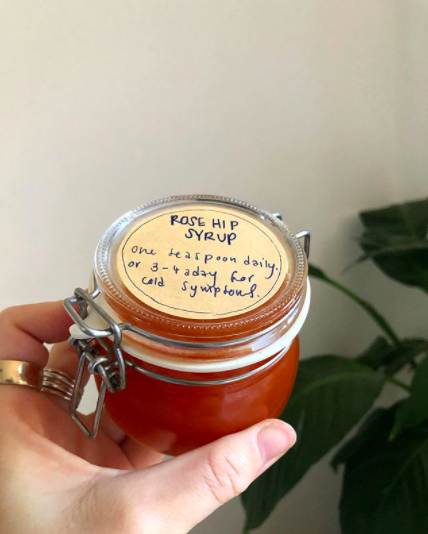 ROSE HIP
SYRUP
one teaspoon daily.
or 3-4 a day for
cold symptoms.